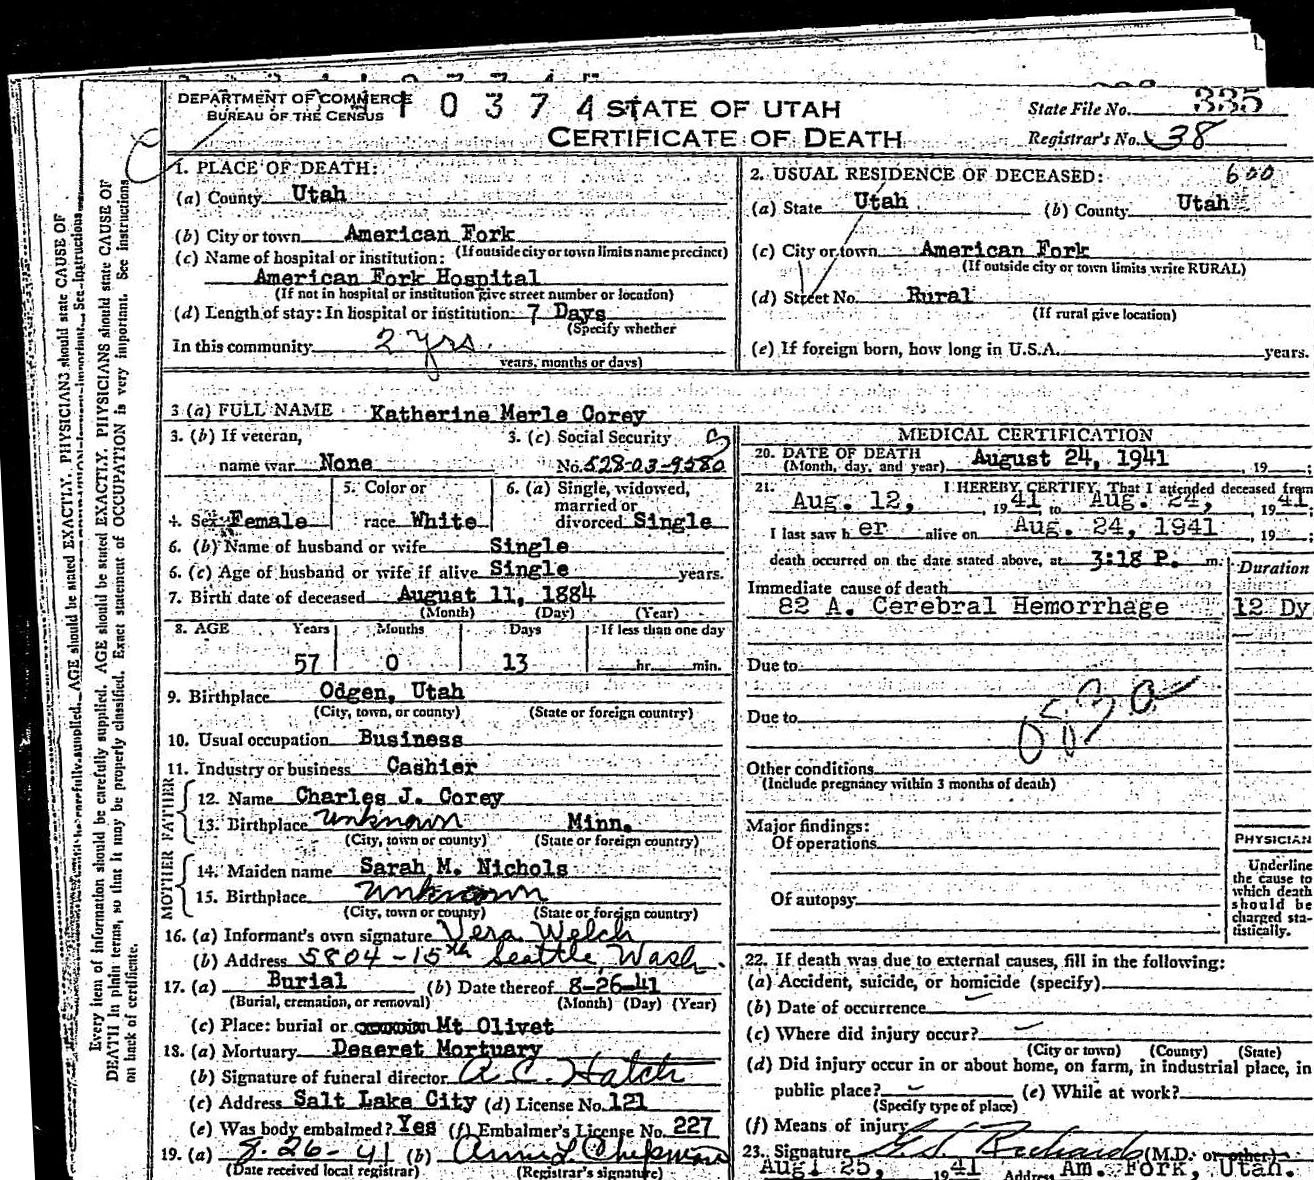 DEPARTMENT OF COMMERCE
BUREAU OF THE CENSUS
1 0 3 7 4
STATE OF UTAH
CERTIFICATE OF DEATH
State File No. 335
Registrar's No. 38
1. PLACE OF DEATH:
(a) County Utah
(b) City or town American Fork
(If outside city or town limits name precinct)
(c) Name of hospital or institution:
American Fork Hospital
(If not in hospital or institution give street number or location)
(d) Length of stay: In hospital or institution 7 Days
(Specify whether
In this community 2 yrs.
years, months or days)
2. USUAL RESIDENCE OF DECEASED: 600
(a) State Utah (b) County Utah
(c) City or town American Fork
(If outside city or town limits write RURAL)
(d) Street No. Rural
(If rural give location)
(e) If foreign born, how long in U.S.A. years.
3 (a) FULL NAME Katherine Merle Corey
3. (b) If veteran,
name war None
3. (c) Social Security
No. 528-03-9580
4. Sex Female
5. Color or
race White
6. (a) Single, widowed,
married or
divorced Single
6. (b) Name of husband or wife Single
6. (c) Age of husband or wife if alive Single years.
7. Birth date of deceased August 11, 1884
(Month) (Day) (Year)
8. AGE Years Months Days If less than one day
57 0 13 hr. min.
9. Birthplace Odgen, Utah
(City, town, or county) (State or foreign country)
10. Usual occupation Business
11. Industry or business Cashier
FATHER
12. Name Charles J. Corey
13. Birthplace Unknown Minn.
(City, town or county) (State or foreign country)
MOTHER
14. Maiden name Sarah M. Nichols
15. Birthplace Unknown
(City, town or county) (State or foreign country)
16. (a) Informant's own signature Vera Welch
(b) Address 5804-15th Seattle, Wash.
17. (a) Burial (b) Date thereof 8-26-41
(Burial, cremation, or removal) (Month) (Day) (Year)
(c) Place: burial or Mt Olivet
18. (a) Mortuary Deseret Mortuary
(b) Signature of funeral director A. C. Hatch
(c) Address Salt Lake City (d) License No. 121
(e) Was body embalmed? Yes (f) Embalmer's License No. 227
19. (a) 8-26-41 (b) Chipman
(Date received local registrar) (Registrar's signature)
MEDICAL CERTIFICATION
20. DATE OF DEATH
(Month, day, and year) August 24, 1941, 19 ;
21. I HEREBY CERTIFY, That I attended deceased from
Aug. 12, 19 41 to Aug. 24, 19 41;
I last saw h er alive on Aug. 24, 1941, 19 ;
death occurred on the date stated above, at 3:18 P. m.
Duration
Immediate cause of death
82 A. Cerebral Hemorrhage 12 Dy
Due to
Due to
Other conditions
(Include pregnancy within 3 months of death)
Major findings:
Of operations
Of autopsy
PHYSICIAN
Underline
the cause to
which death
should be
charged sta-
tistically.
22. If death was due to external causes, fill in the following:
(a) Accident, suicide, or homicide (specify)
(b) Date of occurrence
(c) Where did injury occur?
(City or town) (County) (State)
(d) Did injury occur in or about home, on farm, in industrial place, in
public place? (e) While at work?
(Specify type of place)
(f) Means of injury
23. Signature G. S. Richards (M.D. or other)
Aug. 25, 19 41 Address Am. Fork, Utah.
Every item of information should be carefully supplied. AGE should be stated EXACTLY. PHYSICIANS should state CAUSE OF
DEATH in plain terms, so that it may be properly classified. Exact statement of OCCUPATION is very important. See instructions
on back of certificate.